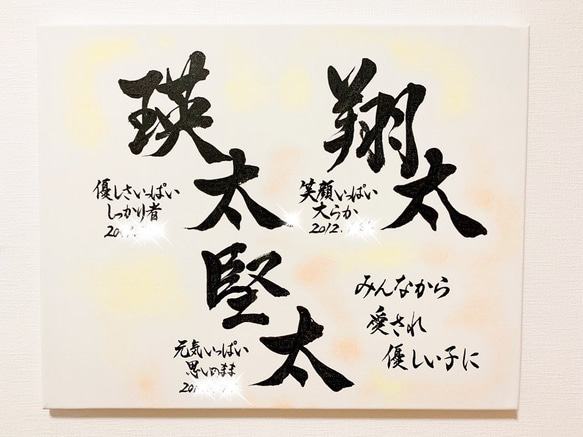 翔太
笑顔いっぱい
大らか
2012.
瑛太
優しさいっぱい
しっかり者
堅太
元気いっぱい
思いのまま
みんなから
愛され
優しい子に